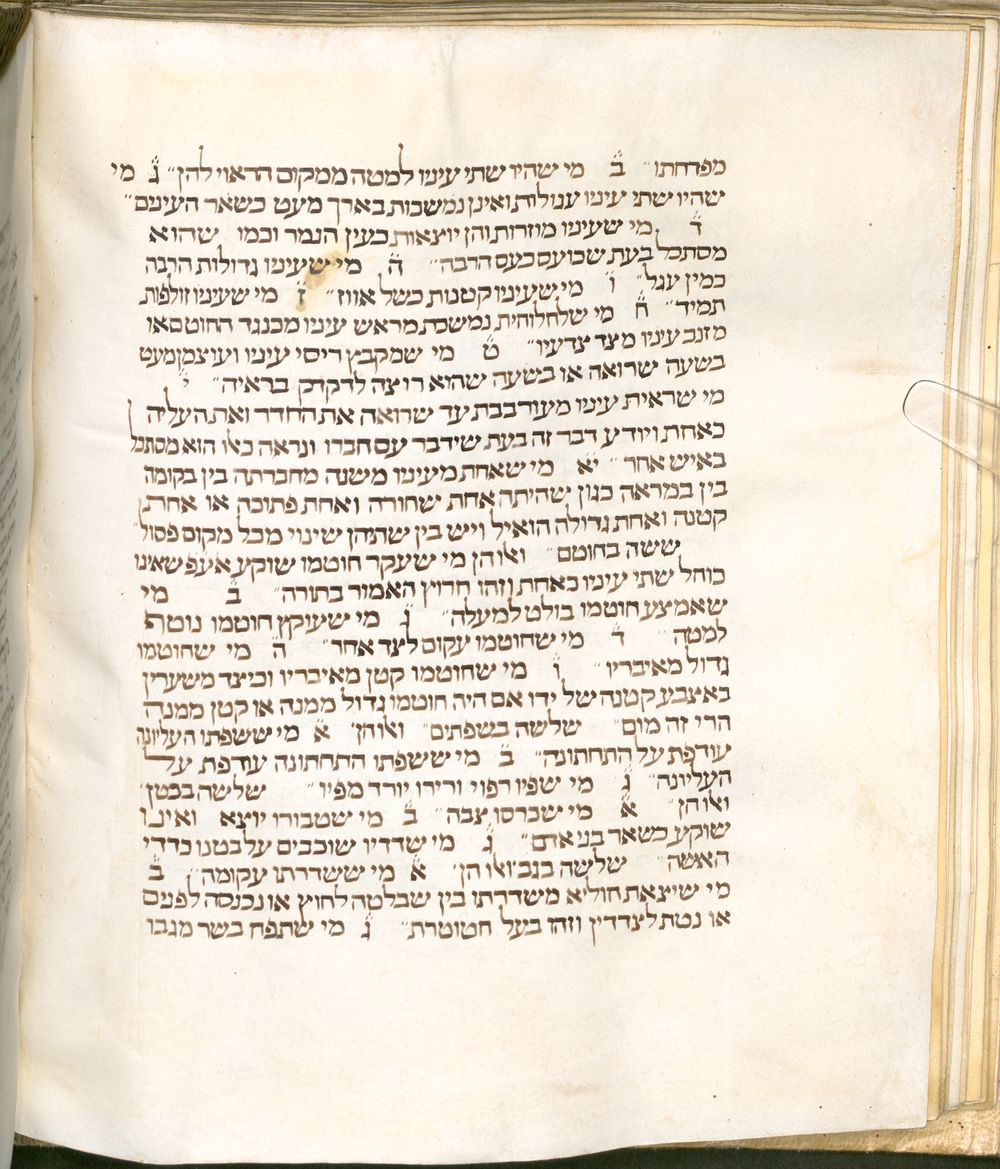 מפדחתו״ ב̈ מי שהיו שתי עיניו למטה ממקום הראוי להן״ ג̈ מי
שהיו שתי עיניו עגולות ואינן נמשכות בארך מעט כשאר העינים״
ד̈ מי שעיניו מוזרות והן יוצאות כעין הנמר וכמו שהוא
מסתכל בעת שכועס כעס הרבה״ ה̈ מי שעיניו גדולות הרבה
כמין עגל״ ו̈ מי שעיניו קטנות כשל אווז״ ז̈ מי שעיניו זולפות
תמיד״ ח̈ מי שלחלוחית נמשכת מראש עיניו מכנגד החוטם או
מזנב עיניו מצד צדעיו״ ט̈ מי שמקבץ ריסי עיניו ועוצמן מעט
בשעה שרואה או בשעה שהוא רוצה לדקדק בראיה״ י̈
מי שראית עיניו מעורבבת עד שרואה את החדר ואת העליה
כאחת ויודע דבר זה בעת שידבר עם חברו ונראה כאלו הוא מסתכל
באיש אחר״ י̈א מי שאחת מעיניו משנה מחברתה בין בקומה
בין במראה כגון שהיתה אחת שחורה ואחת פתוכה או אחת
קטנה ואחת גדולה הואיל ויש בין שתיהן שינוי מכל מקום פסול״
ששה בחוטם״ ואלו הן מי שעקר חוטמו שוקע אעפ שאינו
כוחל שתי עיניו כאחת וזהו חרוץ האמור בתורה״ ב̈ מי
שאמצע חוטמו בולט למעלה״ ג̈ מי שעוקץ חוטמו נוטה
למטה״ ד̈ מי שחוטמו עקום לצד אחר״ ה̈ מי שחוטמו
גדול מאיבריו״ ו̈ מי שחוטמו קטן מאיבריו וכיצד משערין
באצבע קטנה של ידו אם היה חוטמו גדול ממנה או קטן ממנה
הרי זה מום״ שלשה בשפתים״ ואלו הן״ א̈ מי ששפתו העליונה
עודפת על התחתונה״ ב̈ מי ששפתו התחתונה עודפת על
העליונה״ ג̈ מי שפיו רפוי ורירו יורד מפיו״ שלשה בבטן״
ואלו הן״ א̈ מי שכרסו צבה״ ב̈ מי שטבורו יוצא ואינו
שוקע כשאר בני אדם״ ג̈ מי שדדיו שוכבים על בטנו כדדי
האשה״ שלשה בגב״ ואלו הן״ א̈ מי ששדרתו עקומה״ ב̈
מי שיצאת חוליא משדרתו בין שבלטה לחוץ או נכנסה לפנים
או נטת לצדדין וזהו בעל חטוטרת״ ג̈ מי שתפח בשר מגבו